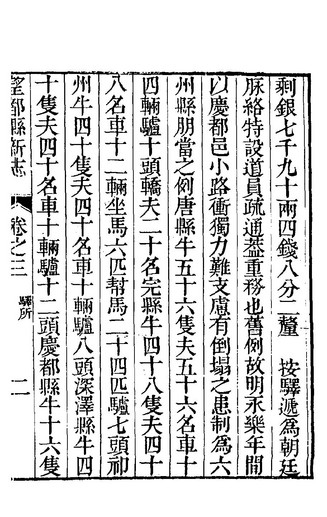 剩銀七千九十兩四錢八分二釐　按驛遞爲朝廷
脉絡特設道員疏通蓋重務也舊例故明永樂年間
以慶都邑小路衝獨力難支慮有倒塌之患制爲六
州縣朋當之例唐縣牛五十六隻夫五十六名車十
四輛驢十頭轎夫二十名完縣牛四十八隻夫四十
八名車十二輛坐馬六匹幫馬二十四匹驢七頭祁
州牛四十隻夫四十名車十輛驢八頭深澤縣牛四
十隻夫四十名車十輛驢十二頭慶都縣牛十六隻
望都縣新志
卷之三
驛所
二